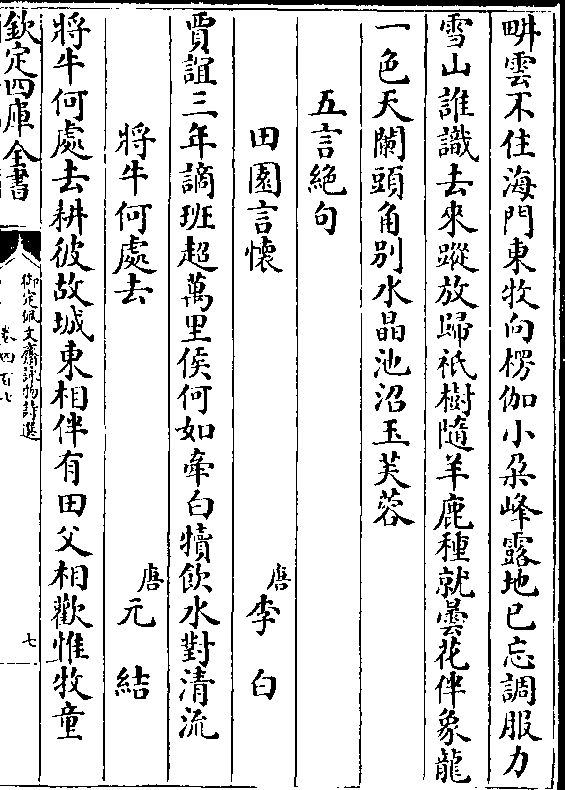 畊雲不住海門東牧向楞伽小朶峰露地已忘調服力
雪山誰識去來蹤放歸祇樹隨羊鹿種就曇花伴象龍
一色天闌頭角別水晶池沼玉芙蓉
五言絶句
田園言懷
唐李白
賈誼三年謫班超萬里侯何如牽白犢飲水對清流
將牛何處去
唐元結
將牛何處去耕彼故城東相伴有田父相歡惟牧童
欽定四庫全書
御定佩文齋詠物詩選
卷四百七
七